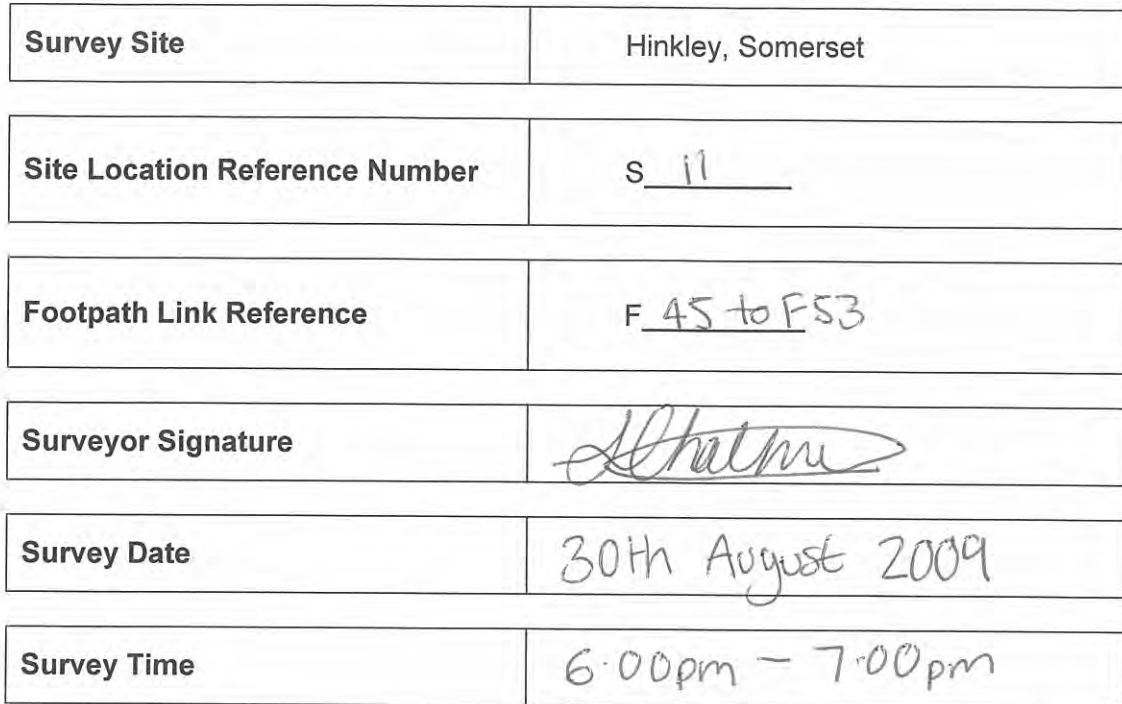 Survey Site Hinkley, Somerset
Site Location Reference Number S 11
Footpath Link Reference F 45 to F53
Surveyor Signature
Survey Date 30th August 2009
Survey Time 6.00pm - 7.00pm